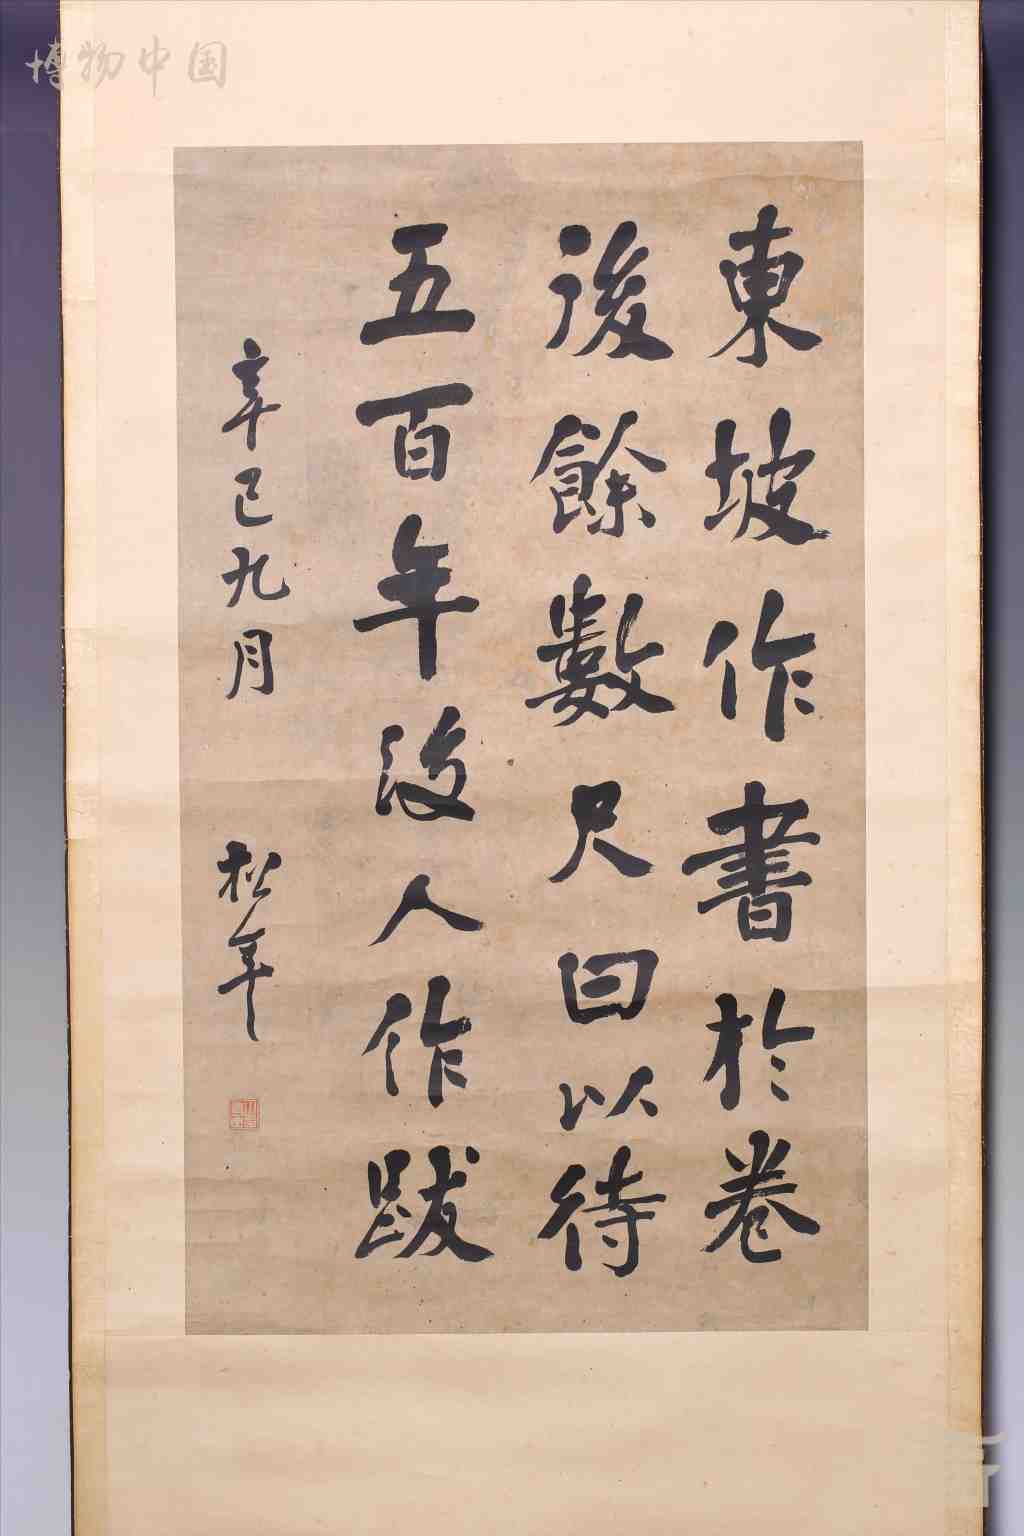 博物中国
東坡作書於卷
後餘數尺曰以待
五百年後人作跋
辛巳九月 松年